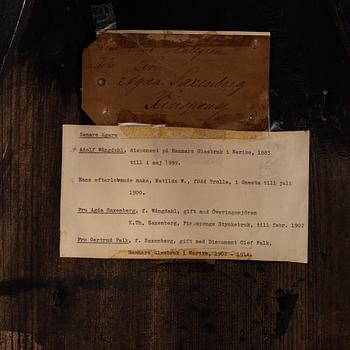 Fru
Agda Saxenberg
Finspong
Senare ägare
Adolf Wångdahl, disponent på Hammars Glasbruk i Nerike, 1883
till i maj 1999.
Hans efterlevande maka, Matilda W., född Trolle, i Gnesta till juli
1900.
Fru Agda Saxenberg, f. Wångdahl, gift med Överingenjören
K.Th. Saxenberg, Finspongs Styckebruk, till febr. 1902
Fru Gertrud Falk, f. Saxenberg, gift med Disponent Olof Falk,
Hammars Glasbruk i Nerike, 1902 - 1914.